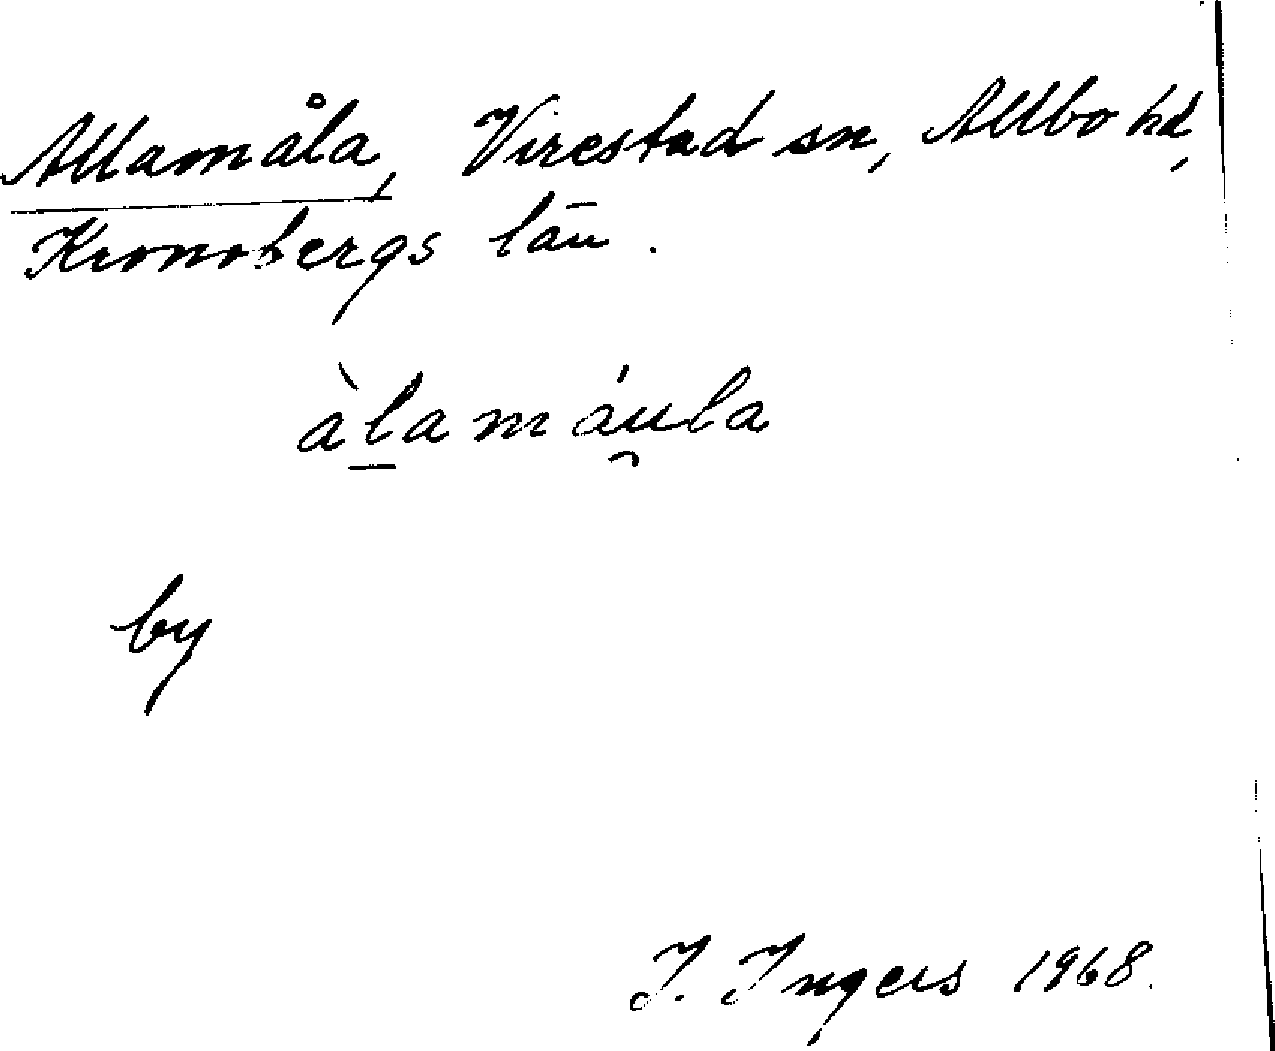 Allamåla, Virestad sn, Allbo hd,
Kronobergs län.
àl̲amáu̯la
by
I. Ingers 1968.